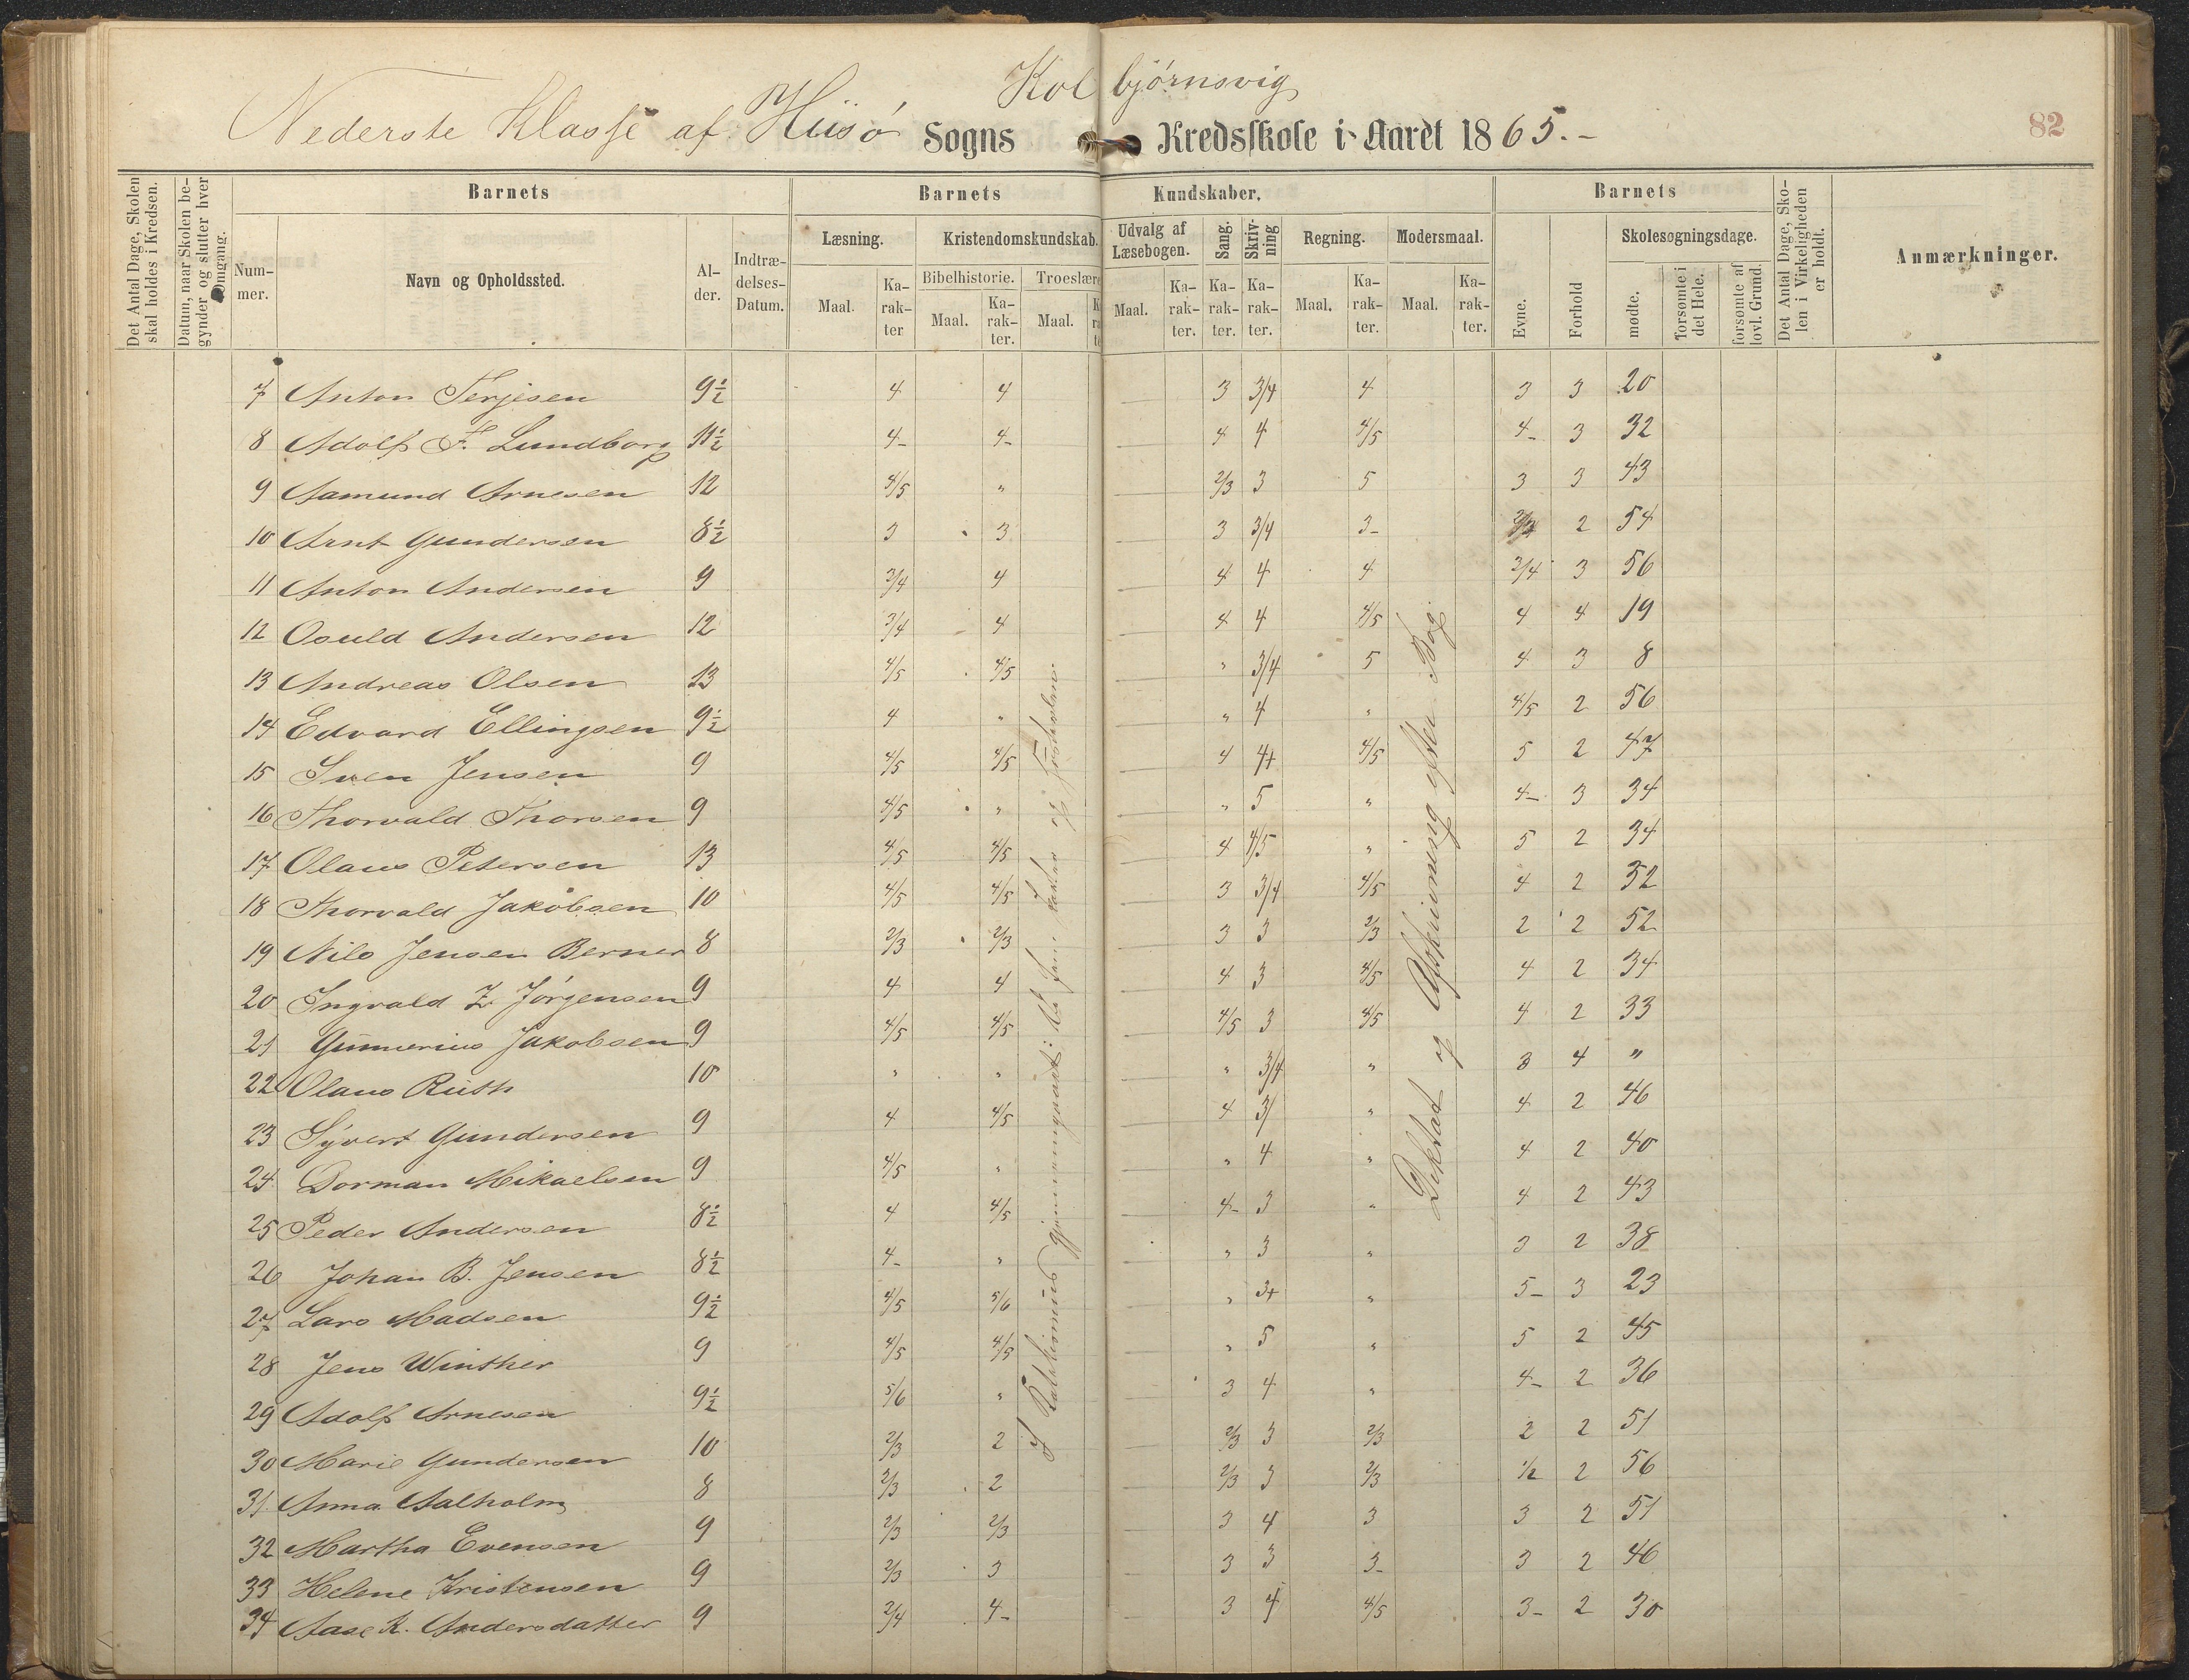 Kolbjørnsvig
Nederste Klasse af Hiisø Sogns Kredsskole i Aaret 1865.-
82
Det Antal Dage, Skolen skal holdes i Kredsen.
Datum, naar Skolen begynder og slutter hver Omgang.
Barnets
Nummer.
Navn og Opholdssted.
Alder.
Indtrædelses-Datum.
Barnets Kundskaber.
Læsning. Maal. Karakter
Kristendomskundskab.
Bibelhistorie. Maal. Karakter.
Troeslære Maal.
Udvalg af Læsebogen. Maal. Karakter.
Sang. Karakter.
Skrivning Karakter.
Regning. Maal. Karakter.
Modersmaal. Maal. Karakter.
Barnets
Evne.
Forhold
Skolesøgningsdage.
mødte.
forsømte i det Hele.
forsømte af lovl. Grund.
Det Antal Dage, Skolen i Virkeligheden er holdt.
Anmærkninger.
7 Anton Terjesen 9½ 4 4 3 3/4 4 3 3 20
8 Adolf F. Lundborg 11½ 4- 4- 4 4 4/5 4- 3 32
9 Aamund Arnesen 12 4/5 " 2/3 3 5 3 3 43
10 Arnt Gundersen 8½ 3 3 3 3/4 3- 2 54
11 Anton Andersen 9 3/4 4 4 4 4 3/4 3 56
12 Osuld Andersen 12 3/4 4 4 4 4/5 4 4 19
13 Andreas Olsen 13 4/5 4/5 " 3/4 5 4 3 8
14 Edvard Ellingsen 9½ 4 " " 4 " 4/5 2 56
15 Sven Jensen 9 4/5 4/5 4 4+ 4/5 5 2 47
16 Thorvald Thorsen 9 4/5 " " 5 " 4- 3 34
17 Olaus Petersen 13 4/5 4/5 4 4/5 " 5 2 34
18 Thorvald Jakobsen 10 4/5 4/5 3 3/4 4/5 4 2 32
19 Nils Jensen Berner 8 2/3 2/3 3 3 2/3 2 2 52
20 Ingvald Z Jørgensen 9 4 4 4 3 4/5 4 2 34
21 Gunnerius Jakobsen 9 4/5 4/5 4/5 3 4/5 4 2 33
22 Olaus Rüth 10 " " " 3/4 " 3 4 "
23 Syvert Gundersen 9 4 4/5 4 3/ " 4 2 46
24 Dorman Mikaelsen 9 4/5 " " 4 " 4 2 40
25 Peder Andersen 8½ 4 4/5 4- 3 " 4 2 43
26 Johan B. Jensen 8½ 4- " " 3 " 3 2 38
27 Lars Madsen 9½ 4/5 5/6 " 3+ " 5- 3 23
28 Jens Winther 9 4/5 4/5 " 5 " 5 2 45
29 Adolf Arnesen 9½ 5/6 " 3 4 " 4- 2 36
30 Marie Gundersen 10 2/3 2 2/3 3 2/3 2 2 51
31 Anna Aalholm 8 2/3 2 2/3 3 2/3 1/2 2 56
32 Martha Evensen 9 2/3 2/3 3 4 3 3 2 51
33 Helene Kristensen 9 2/3 3 3 3 3- 3 2 46
34 Aase K. Andersdatter 9 3/4 4- 3 4 4/5 3- 2 30
I Katekismus gjennemgaaet: de fem Parter og
Diktat og Afskrivning efter Bog